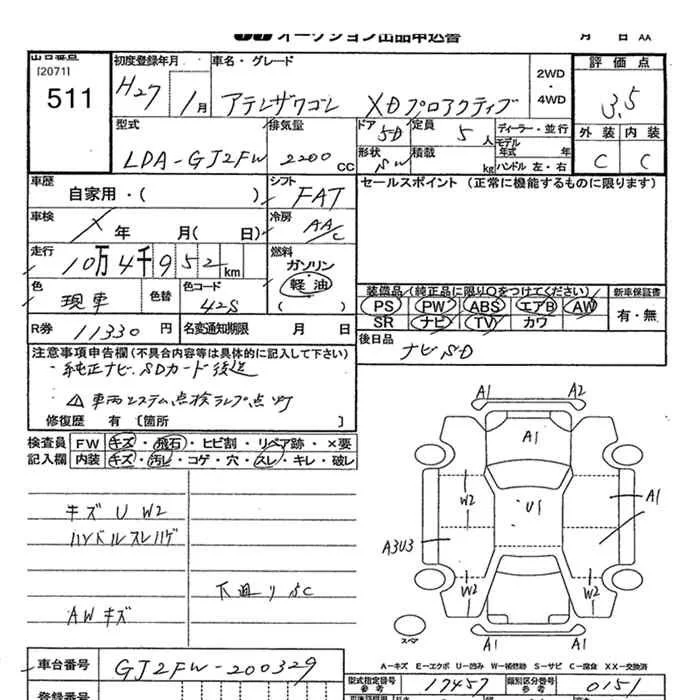 オークション出品申込書 月 日 AA
出品番号
[2071]
511
初度登録年月
H27 1月
車名・グレード
アテンザワゴン XDプロアクティブ
2WD
・
4WD
評価点
3.5
外装 内装
C C
型式
LDA-GJ2FW
排気量
2200 CC
ドア 5D
定員 5人
形状 SW
積載 kg
ディーラー・並行
モデル年式 年
ハンドル 左・右
車歴
自家用・( )
シフト
FAT
セールスポイント (正常に機能するものに限ります)
車検
X 年 月( 日)
冷房
AAC
走行
10万4千952km
燃料
ガソリン
軽油
( )
色
現車
色替
色コード
42S
装備品(純正品に限り○をつけてください)
PS PW ABS エアB AW
SR ナビ TV カワ
新車保証書
有・無
R券 11330円
名変通知期限 月 日
後日品
ナビSD
注意事項申告欄(不具合内容等は具体的に記入して下さい)
・純正ナビ、SDカード後送
⚠車両システム点検ランプ点灯
修復歴 有〔箇所 〕
検査員記入欄
FW キズ・飛石・ヒビ割・リペア跡・×要
内装 キズ・汚レ・コゲ・穴・スレ・キレ・破レ
キズ U W2
ハンドルスレハゲ
下廻りSC
AWキズ
A1 A2
A1
W2
U1
A1
A3U3
W2 W2
A1 A1
スペア
A-キズ E-エクボ U-凹み W-補修跡 S-サビ C-腐食 XX-交換済
車台番号
GJ2FW-200329
型式指定番号
参考
17457
類別区分番号
参考
0151
登録番号